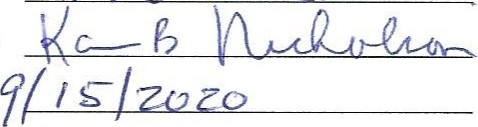 B Nicholson
9/15/2020